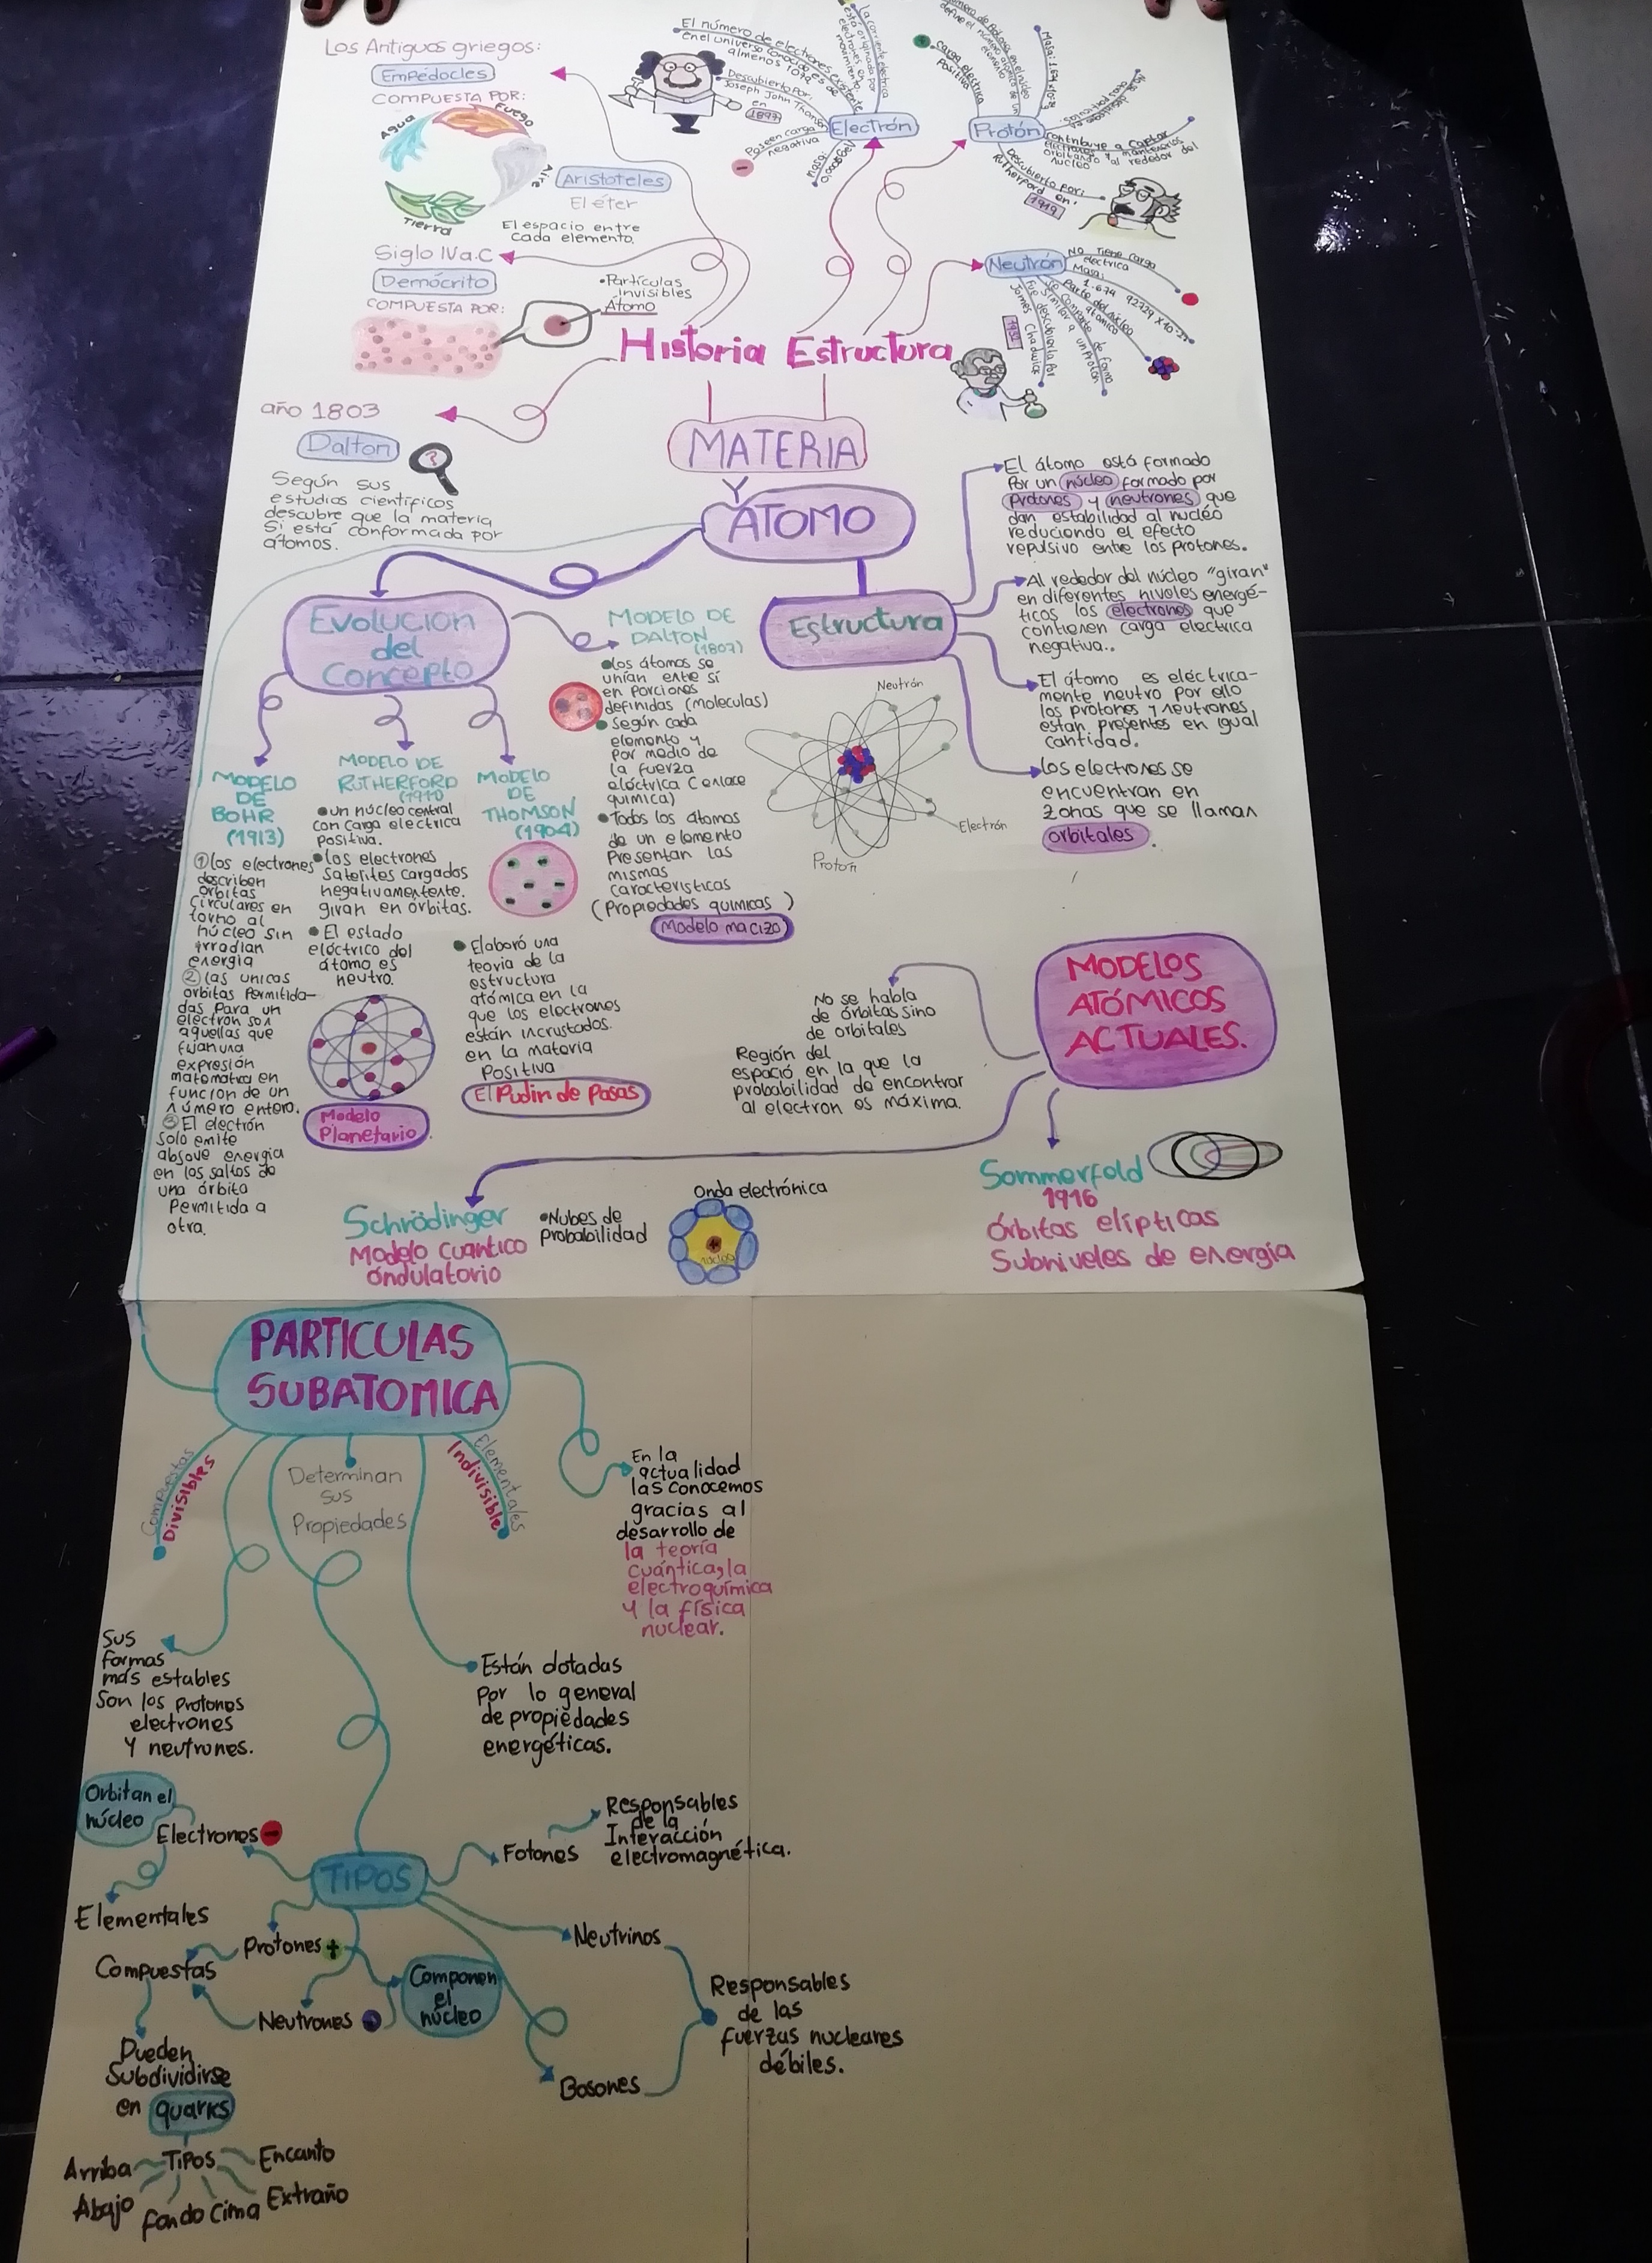 Los Antiguos griegos:
Empédocles
COMPUESTA POR:
Agua
Fuego
Aire
Tierra
Aristoteles
El éter
El espacio entre
cada elemento.
Siglo IV a.C
Demócrito
COMPUESTA POR:
•Partículas
invisibles
Átomo
año 1803
Dalton
?
Según sus
estudios científicos
descubre que la materia
Si está conformada por
átomos.
El número de electrones existente
en el universo conocido es de
almenos 10
Descubierto por:
Joseph John Thomson
en
1897
Poseen carga
negativa
Masa:
La corriente eléctrica
está originada por
electrones en
movimiento.
Electrón
Carga eléctrica
Positiva
Protón
contribuye a captar
electrones y mantenerlos
orbitando al rededor del
núcleo
Descubierto por:
Rutherford en:
1919
Neutrón
No tiene carga
electrica
Masa:
Parte del núcleo
atómico
Se comporta de forma
similar a un Protón
Fue descubierta por
James Chadwick
1932
Historia Estructura
MATERIA
Y
ÁTOMO
Evolucion
del
Concepto
Estructura
MODELO DE
DALTON
(1807)
•Los átomos se
unían entre sí
en porciones
definidas (moleculas)
•Según cada
elemento y
por medio de
la fuerza
eléctrica (enlace
química)
•Todos los átomos
de un elemento
Presentan las
mismas
caracteristicas
(Propiedades químicas)
Modelo macizo
MODELO
DE
BOHR
(1913)
①los electrones
describen
órbitas
Circulares en
torno al
núcleo sin
irradian
energía
②las unicas
orbitas Permitida-
das para un
electrón son
aquellas que
fijan una
expresión
matematica en
función de un
número entero.
③El electrón
Solo emite
absove energía
en los saltos de
una órbita
Permitida a
otra.
MODELO DE
RUTHERFORD
(1911)
•un núcleo central
con carga electrica
Positiva.
•los electrones
satelites cargados
negativamentente.
giran en órbitas.
•El estado
eléctrico del
átomo es
neutro.
Modelo
Planetario.
MODELO
DE
THOMSON
(1904)
•Elaboró una
teoría de la
estructura
atómica en la
que los electrones
están incrustados.
en la materia
Positiva
El Pudin de Pasas
El átomo está formado
Por un núcleo formado por
protones y neutrones que
dan estabilidad al nucléo
reduciendo el efecto
repulsivo entre los protones.
Al rededor del núcleo "giran"
en diferentes niveles energé-
ticos los electrones que
contienen carga electrica
negativa..
El átomo es eléctrica-
mente neutro por ello
los protones y neutrones
estan presentes en igual
cantidad.
Los electrones se
encuentran en
zonas que se llaman
orbitales.
Neutrón
Electrón
Protón
MODELOS
ATÓMICOS
ACTUALES.
No se habla
de órbitas sino
de orbitales
Región del
espació en la que la
probabilidad de encontrar
al electron es máxima.
Schrödinger
Modelo Cuantico
Ondulatorio
•Nubes de
probabilidad
Onda electrónica
núcleo
Sommerfeld
1916
Órbitas elípticas
Subniveles de energía
PARTICULAS
SUBATOMICA
Compuestas
Divisibles
Determinan
sus
Propiedades
Elementales
Indivisible
En la
actualidad
las conocemos
gracias al
desarrollo de
la teoría
cuántica, la
electroquímica
y la física
nuclear.
Sus
formas
más estables
Son los protones
electrones
Y neutrones.
Están dotadas
Por lo general
de propiedades
energéticas.
Orbitan el
núcleo
Electrones -
Elementales
TIPOS
Fotones
Responsables
de la
Interacción
electromagnética.
Protones +
Compuestas
Neutrones
Componen
el
núcleo
Neutrinos
Bosones
Responsables
de las
fuerzas nucleares
débiles.
Pueden
Subdividirse
en quarks
TIPOS
Arriba
Abajo
fondo
Cima
Extraño
Encanto